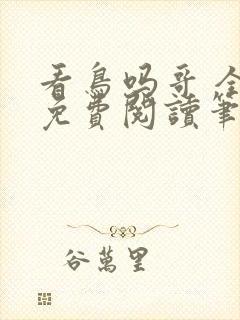 看鳥吗哥全
免費閱讀筆
谷萬里